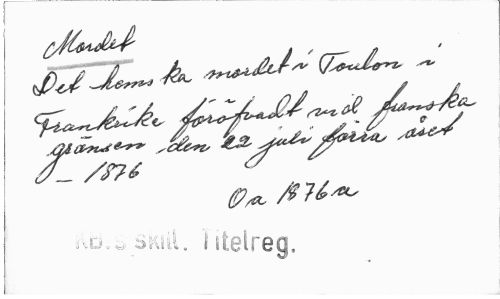 Mordet
Det hemska mordet i Toulon i
Frankrike föröfvadt vid franska
gränsen den 22 juli förra året
- 1876
Oa 1876 a
KB:s skill. Titelreg.